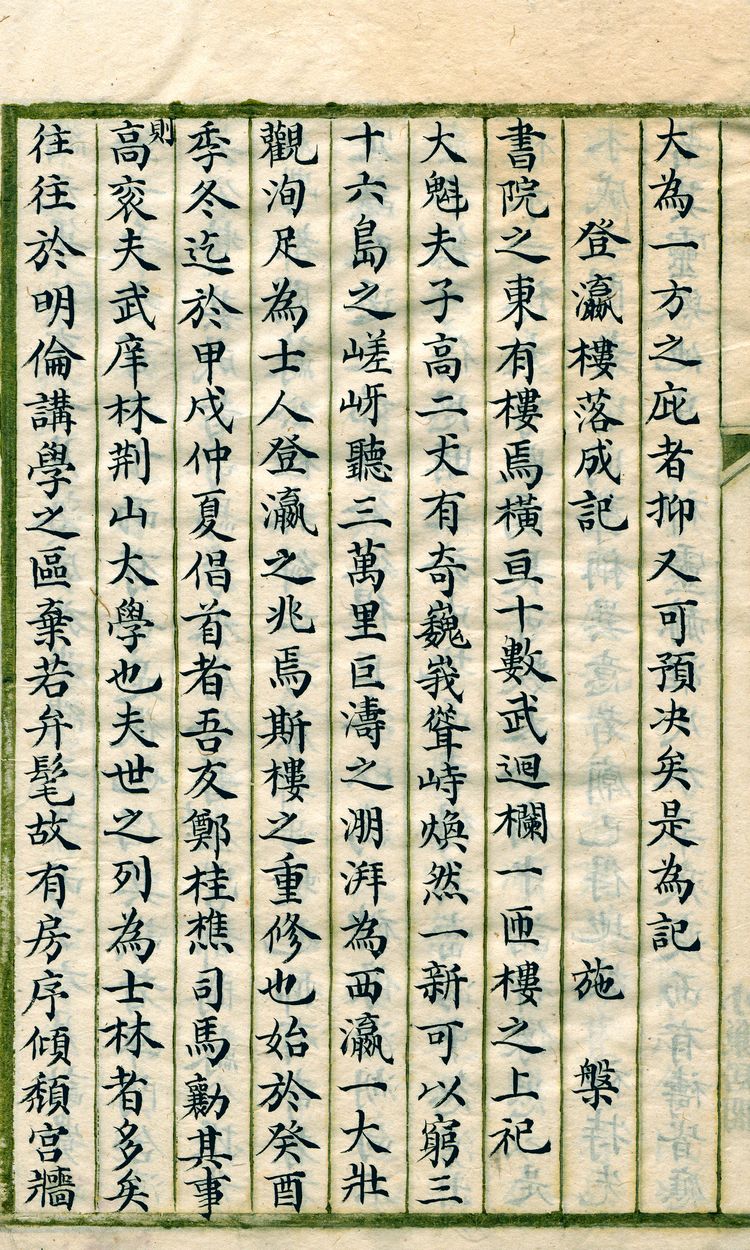 大為一方之庇者抑又可預决矣是為記
登瀛樓落成記 施 槃
書院之東有樓焉橫亘十數武迴欄一匝樓之上祀
大魁夫子高二丈有奇巍峩聳峙煥然一新可以窮三
十六島之嵯岈聽三萬里巨濤之淜湃為西瀛一大壯
觀洵足為士人登瀛之兆焉斯樓之重修也始於癸酉
季冬迄於甲戍仲夏倡首者吾友鄭桂樵司馬勷其事
則高袞夫武庠林荆山太學也夫世之列為士林者多矣
往往於明倫講學之區棄若弁髦故有房序傾頽宮牆